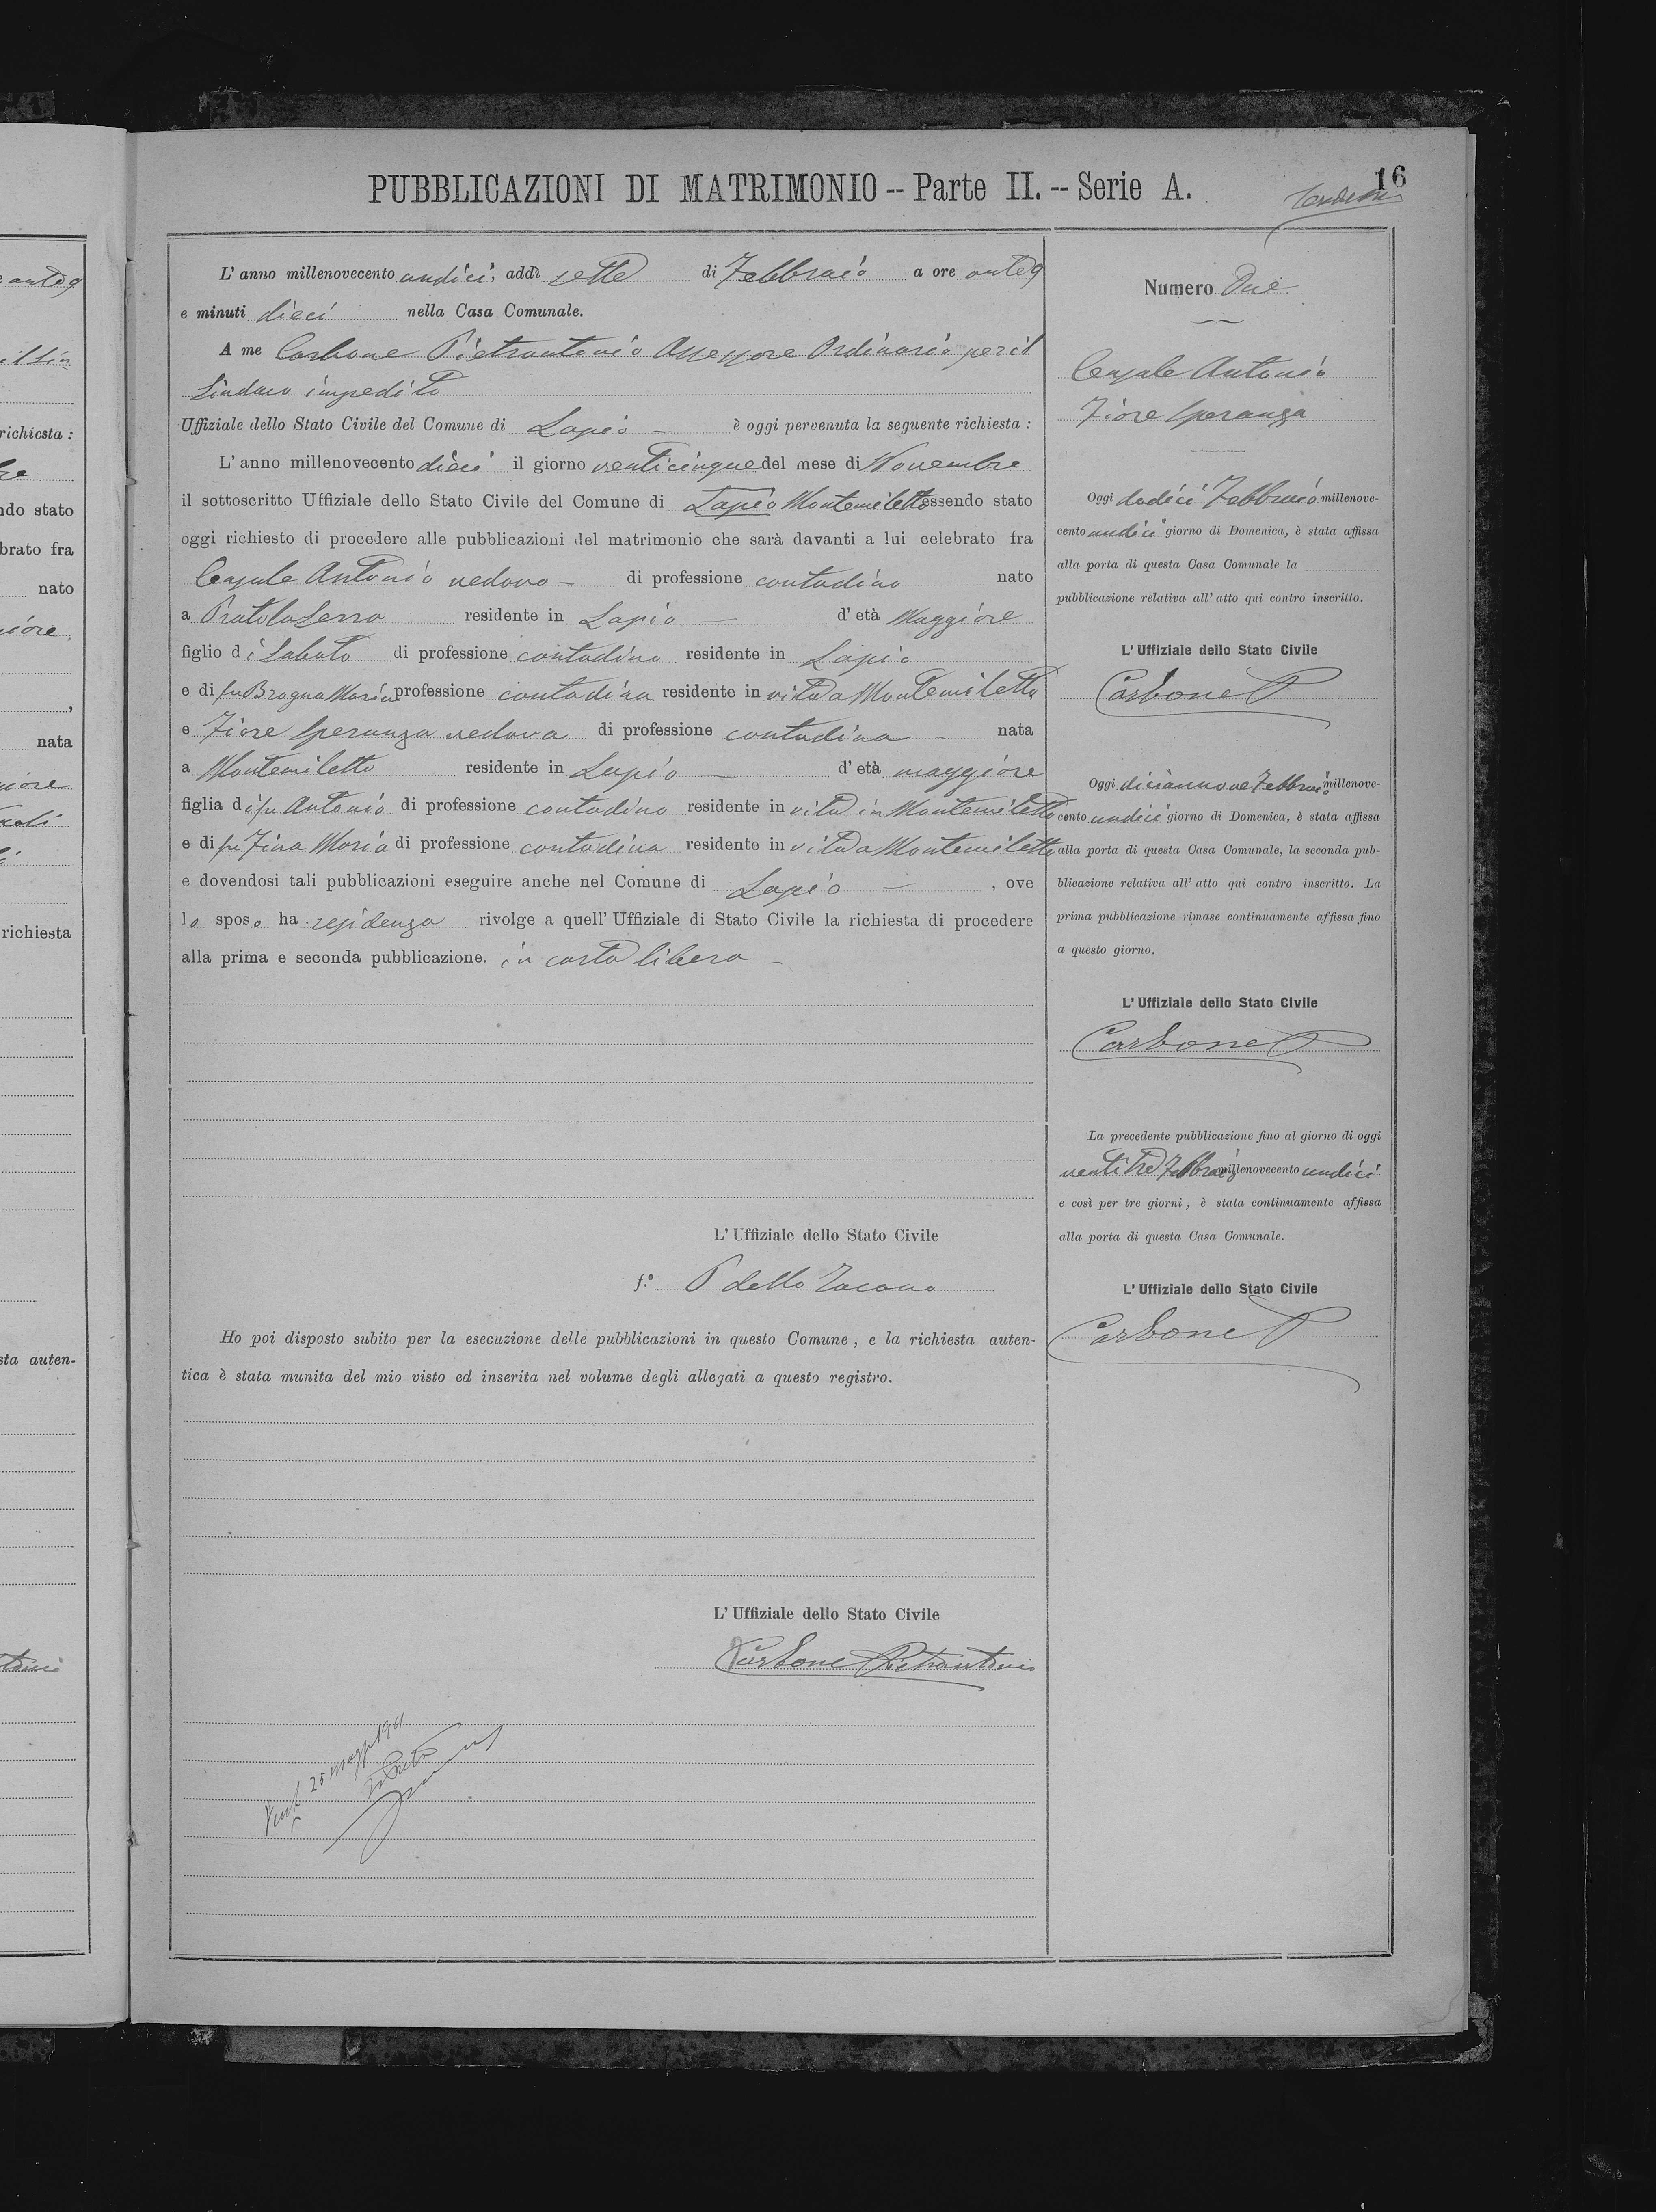 PUBBLICAZIONI DI MATRIMONIO -- Parte II. -- Serie A.
16
L' anno millenovecento undici, addì sette di Febbraio a ore ant 9
e minuti dieci nella Casa Comunale.
A me Carbone Pietrantonio Assessore Ordinario per il
Sindaco impedito
Uffiziale dello Stato Civile del Comune di Lapio — è oggi pervenuta la seguente richiesta :
L' anno millenovecento dieci il giorno venticinque del mese di Novembre
il sottoscritto Uffiziale dello Stato Civile del Comune di Lapio Montemiletto essendo stato
oggi richiesto di procedere alle pubblicazioni del matrimonio che sarà davanti a lui celebrato fra
Censale Antonio vedovo — di professione contadino nato
a Pratola Serra residente in Lapio — d' età Maggiore
figlio di Sabato di professione contadino residente in Lapio
e di fu Brogna Maria professione contadina residente in vita a Montemiletto
e Fiore Speranza vedova di professione contadina — nata
a Montemiletto residente in Lapio — d' età maggiore
figlia di fu Antonio di professione contadino residente in vita in Montemiletto
e di fu Fina Maria di professione contadina residente in vita a Montemiletto
e dovendosi tali pubblicazioni eseguire anche nel Comune di Lapio — , ove
lo sposo ha residenza rivolge a quell' Uffiziale di Stato Civile la richiesta di procedere
alla prima e seconda pubblicazione. in carta libera —
L' Uffiziale dello Stato Civile
f.° P dello Iacono
Ho poi disposto subito per la esecuzione delle pubblicazioni in questo Comune, e la richiesta auten-
tica è stata munita del mio visto ed inserita nel volume degli allegati a questo registro.
L' Uffiziale dello Stato Civile
Carbone Pietrantonio
Verif 25 magg 1911
Numero Due
Censale Antonio
Fiore Speranza
Oggi dodici Febbraio millenove-
cento undici giorno di Domenica, è stata affissa
alla porta di questa Casa Comunale la
pubblicazione relativa all' atto qui contro inscritto.
L' Uffiziale dello Stato Civile
Carbone P
Oggi diciannove Febbraio millenove-
cento undici giorno di Domenica, è stata affissa
alla porta di questa Casa Comunale, la seconda pub-
blicazione relativa all' atto qui contro inscritto. La
prima pubblicazione rimase continuamente affissa fino
a questo giorno.
L' Uffiziale dello Stato Civile
Carbone P
La precedente pubblicazione fino al giorno di oggi
ventitre Febbraio millenovecento undici
e così per tre giorni, è stata continuamente affissa
alla porta di questa Casa Comunale.
L' Uffiziale dello Stato Civile
Carbone P